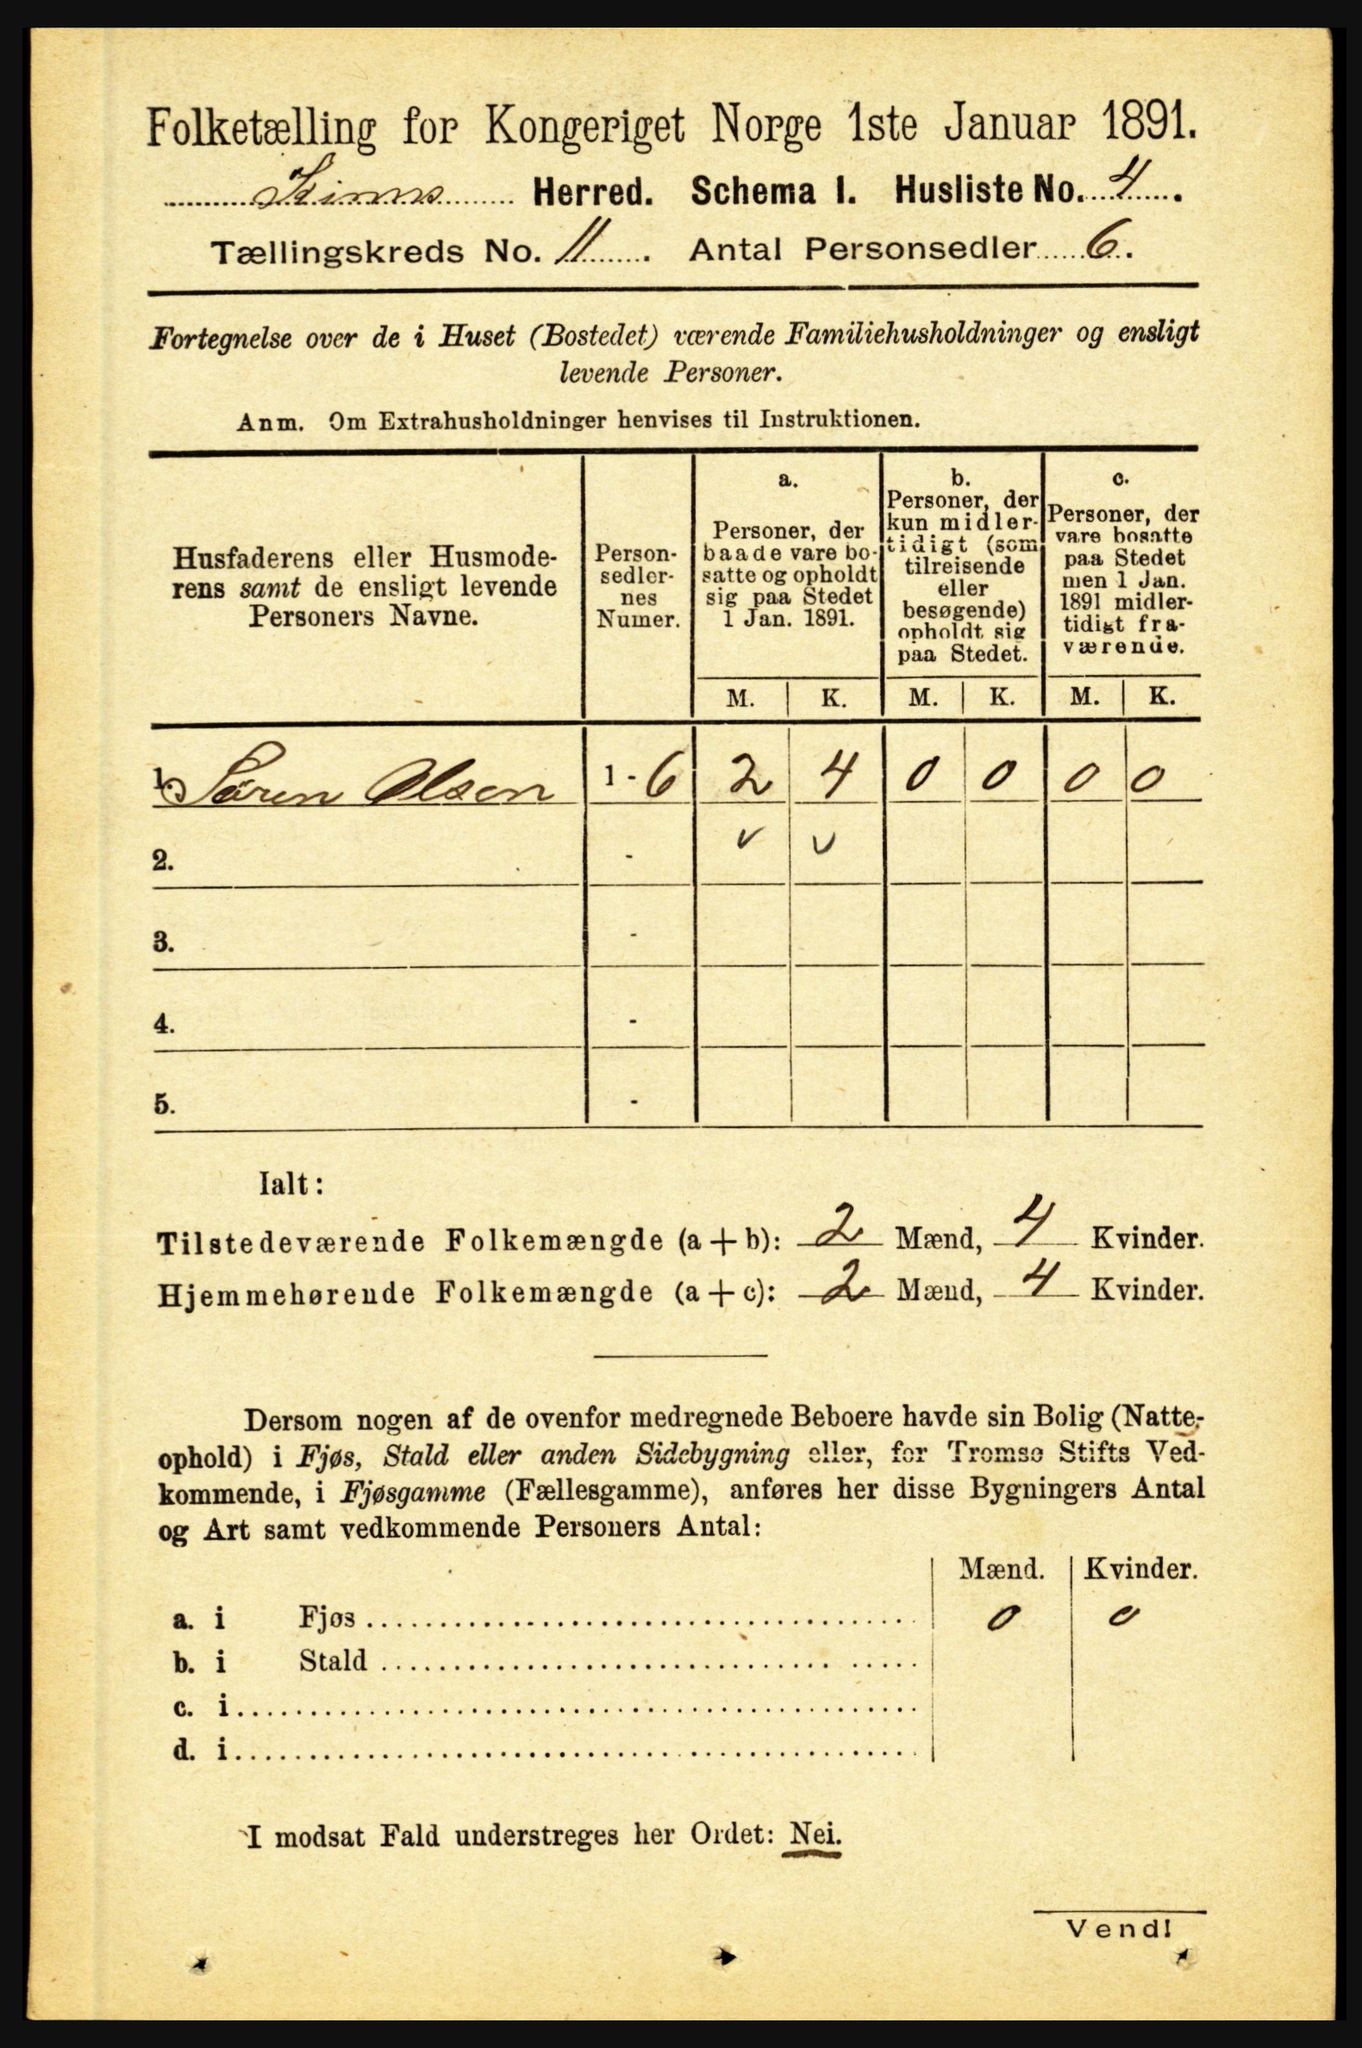 Folketælling for Kongeriget Norge 1ste Januar 1891.
Kinns Herred. Schema I. Husliste No. 4.
Tællingskreds No. 11. Antal Personsedler 6.
Fortegnelse over de i Huset (Bostedet) værende Familiehusholdninger og ensligt
levende Personer.
Anm. Om Extrahusholdninger henvises til Instruktionen.
Husfaderens eller Husmode-
rens samt de ensligt levende
Personers Navne.
Person-
sedler-
nes
Numer.
a.
Personer, der
baade vare bo-
satte og opholdt
sig paa Stedet
1 Jan. 1891.
b.
Personer, der
kun midler-
tidigt (som
tilreisende
eller
besøgende)
opholdt sig
paa Stedet.
c.
Personer, der
vare bosatte
paa Stedet
men 1 Jan.
1891 midler-
tidigt fra-
værende.
M. K. M. K. M. K.
1. Søren Olsen 1 - 6 2 4 0 0 0 0
2. - v v
3. -
4. -
5. -
Ialt:
Tilstedeværende Folkemængde (a + b): 2 Mænd, 4 Kvinder.
Hjemmehørende Folkemængde (a + c): 2 Mænd, 4 Kvinder.
Dersom nogen af de ovenfor medregnede Beboere havde sin Bolig (Natte-
ophold) i Fjøs, Stald eller anden Sidebygning eller, for Tromsø Stifts Ved-
kommende, i Fjøsgamme (Fællesgamme), anføres her disse Bygningers Antal
og Art samt vedkommende Personers Antal:
Mænd. Kvinder.
a. i Fjøs 0 0
b. i Stald
c. i
d. i
I modsat Fald understreges her Ordet: Nei.
Vend!